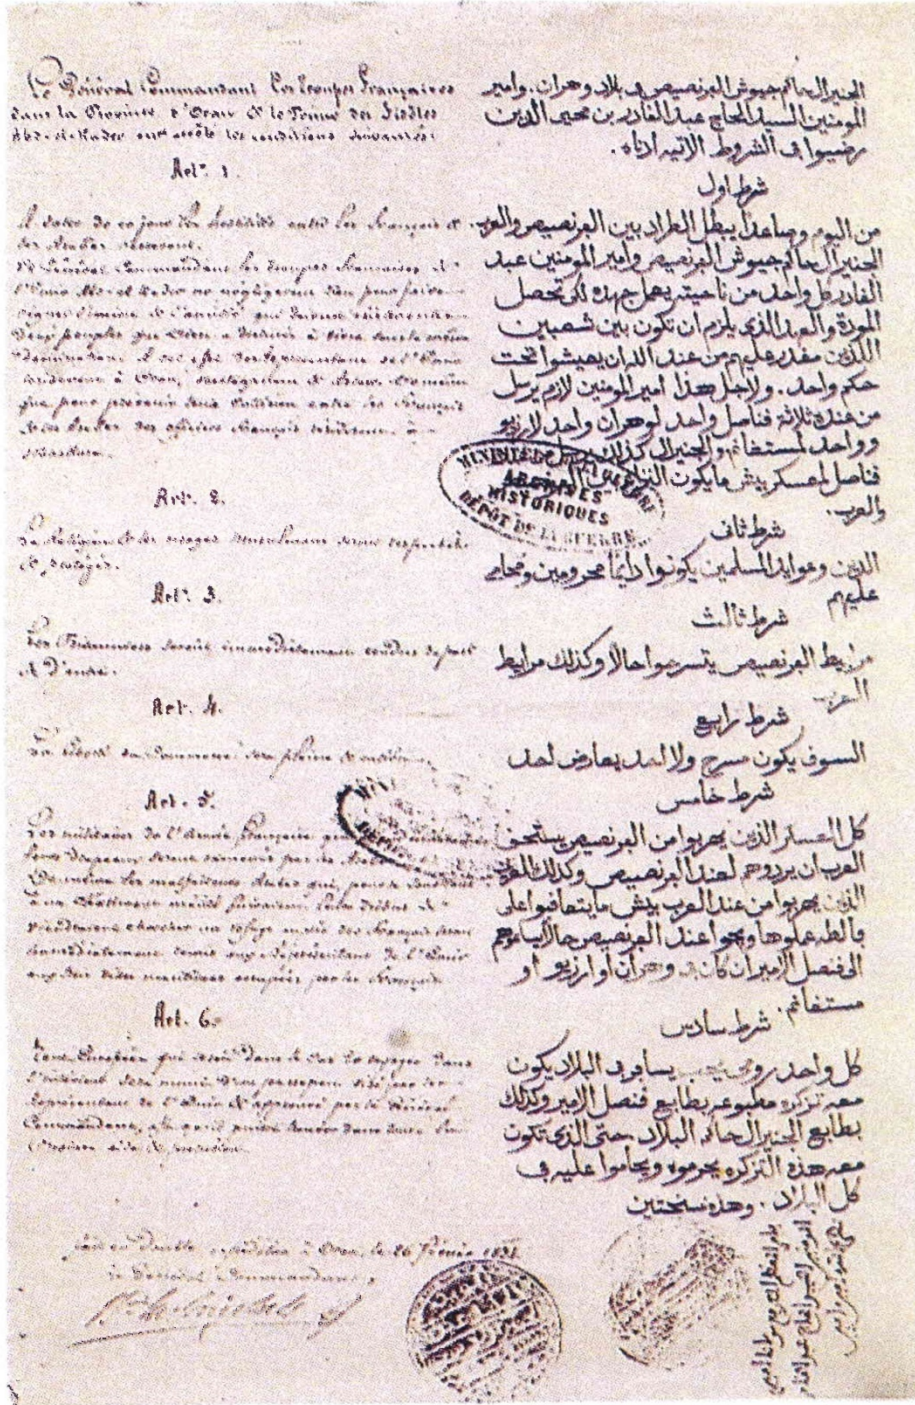 Le Général Commandant les troupes Françaises
dans la Province d'Oran & le Prince des Fidèles
Abd-el-Kader ont arrêté les conditions suivantes:
Art. 1.
A dater de ce jour les hostilités entre les Français &
les Arabes cesseront.
Le Général Commandant les troupes françaises &
l'Emir Abd-el-Kader ne négligeront rien pour faire
régner l'union & l'amitié qui doivent exister entre
deux peuples que Dieu a destinés à vivre sous la même
domination. A cet effet des représentans de l'Emir
résideront à Oran, Mostaganem & Arzew. De même
que pour prévenir toute collision entre les Français
& les Arabes des officiers français résideront à
Mascara.
Art. 2.
La Religion & les usages musulmans seront respectés
& protégés.
Art. 3.
Les Prisonniers seront immédiatement rendus de part
& d'autre.
Art. 4.
La liberté du Commerce sera pleine & entière.
Art. 5.
Les militaires de l'Armée Française qui
leurs drapeaux seront ramenés par les Arabes
De même les malfaiteurs Arabes qui, pour se soustraire
à un châtiment mérité fuiraient leurs tribus &
viendraient chercher un refuge auprès des Français seront
immédiatement remis aux représentans de l'Emir
résidant aux villes maritimes occupées par les Français.
Art. 6.
Tout Européen qui serait dans le cas de voyager dans
l'intérieur sera muni d'un passeport visé par le
Représentant de l'Emir & approuvé par le Général
Commandant, afin qu'il puisse trouver dans toute la
Province aide & protection.
fait en double expédition à Oran, le 26 février 1834
Le Général Commandant,
الجنيرال حاكم جيوش الفرنصيص في بلاد وهران. وامير
المومنين السيد الحاج عبد القادر بن محيي الدين
رضيوا في الشروط الاتيه ادناه.
شرط اول
من اليوم وصاعدا يبطل الطراد بين الفرنصيص والعرب.
الجنيرال حاكم جيوش الفرنصيص وامير المومنين عبد
القادر كل واحد من ناحيته يعمل جهده لكي تحصل
المودة والعهد الذي يلزم ان تكون بين شعبين
اللذين مقدر عليهم من عند الله ان يعيشوا تحت
حكم واحد. ولاجل هذا امير المومنين لازم يرسل
من عنده ثلاثة قناصل واحد لوهران واحد لارزيو
وواحد لمستغانم والجنيرال كذلك يرسل
قناصل لمعسكر بيش ما يكون
والعرب.
شرط ثاني
الدين وعوايد المسلمين يكونوا دايمًا محرومين ومحامى
عليهم
شرط ثالث
مرابيط الفرنصيص يتسرحوا حالا وكذلك مرابيط
العرب
شرط رابع
السوق يكون مسرح ولا احد يعارض احد
شرط خامس
كل العسكر الذين يهربوا من الفرنصيص يستحق
العرب ان يردوهم لعند الفرنصيص وكذلك العرب
الذين يهربوا من عند العرب بيش ما يتعاقبوا على
عملوها ويجوا عند الفرنصيص حالا
الى قنصل الامير ان كان في وهران او ارزيو او
مستغانم.
شرط سادس
كل واحد رومي يحب يسافر في البلاد يكون
معه تزكره مطبوعه بطابع قنصل الامير وكذلك
بطابع الجنيرال حاكم البلاد حتى الذي تكون
معه هذه التزكره يحرموه ويحاموا عليه في
كل البلاد. وهذه سنختين
MINISTÈRE DE LA GUERRE
ARCHIVES
HISTORIQUES
DÉPÔT DE LA GUERRE